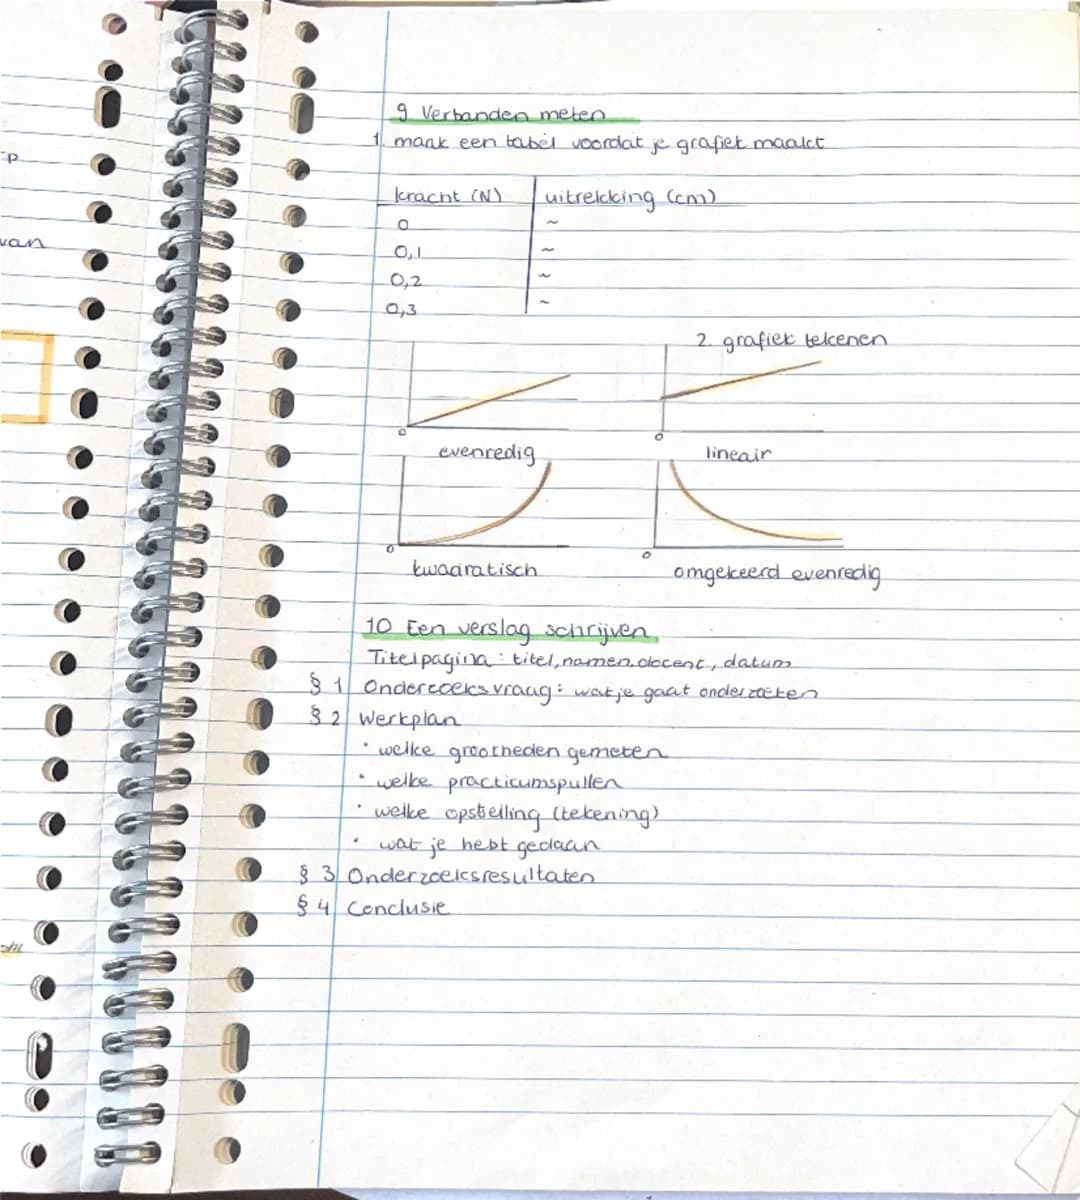 9 Verbanden meten
1. maak een tabel voordat je grafiek maakt
kracht (N) uitrekking (cm)
0 ~
0,1 ~
0,2 ~
0,3 ~
2. grafiek tekenen
0 0
evenredig lineair
0 0
kwadratisch omgekeerd evenredig
10 Een verslag schrijven
Titelpagina : titel, namen, docent, datum
§ 1 Onderzoeksvraag : wat je gaat onderzoeken
§ 2 Werkplan
· welke grootheden gemeten
· welke practicumspullen
· welke opstelling (tekening)
· wat je hebt gedaan
§ 3 Onderzoeksresultaten
§ 4 Conclusie
p
van